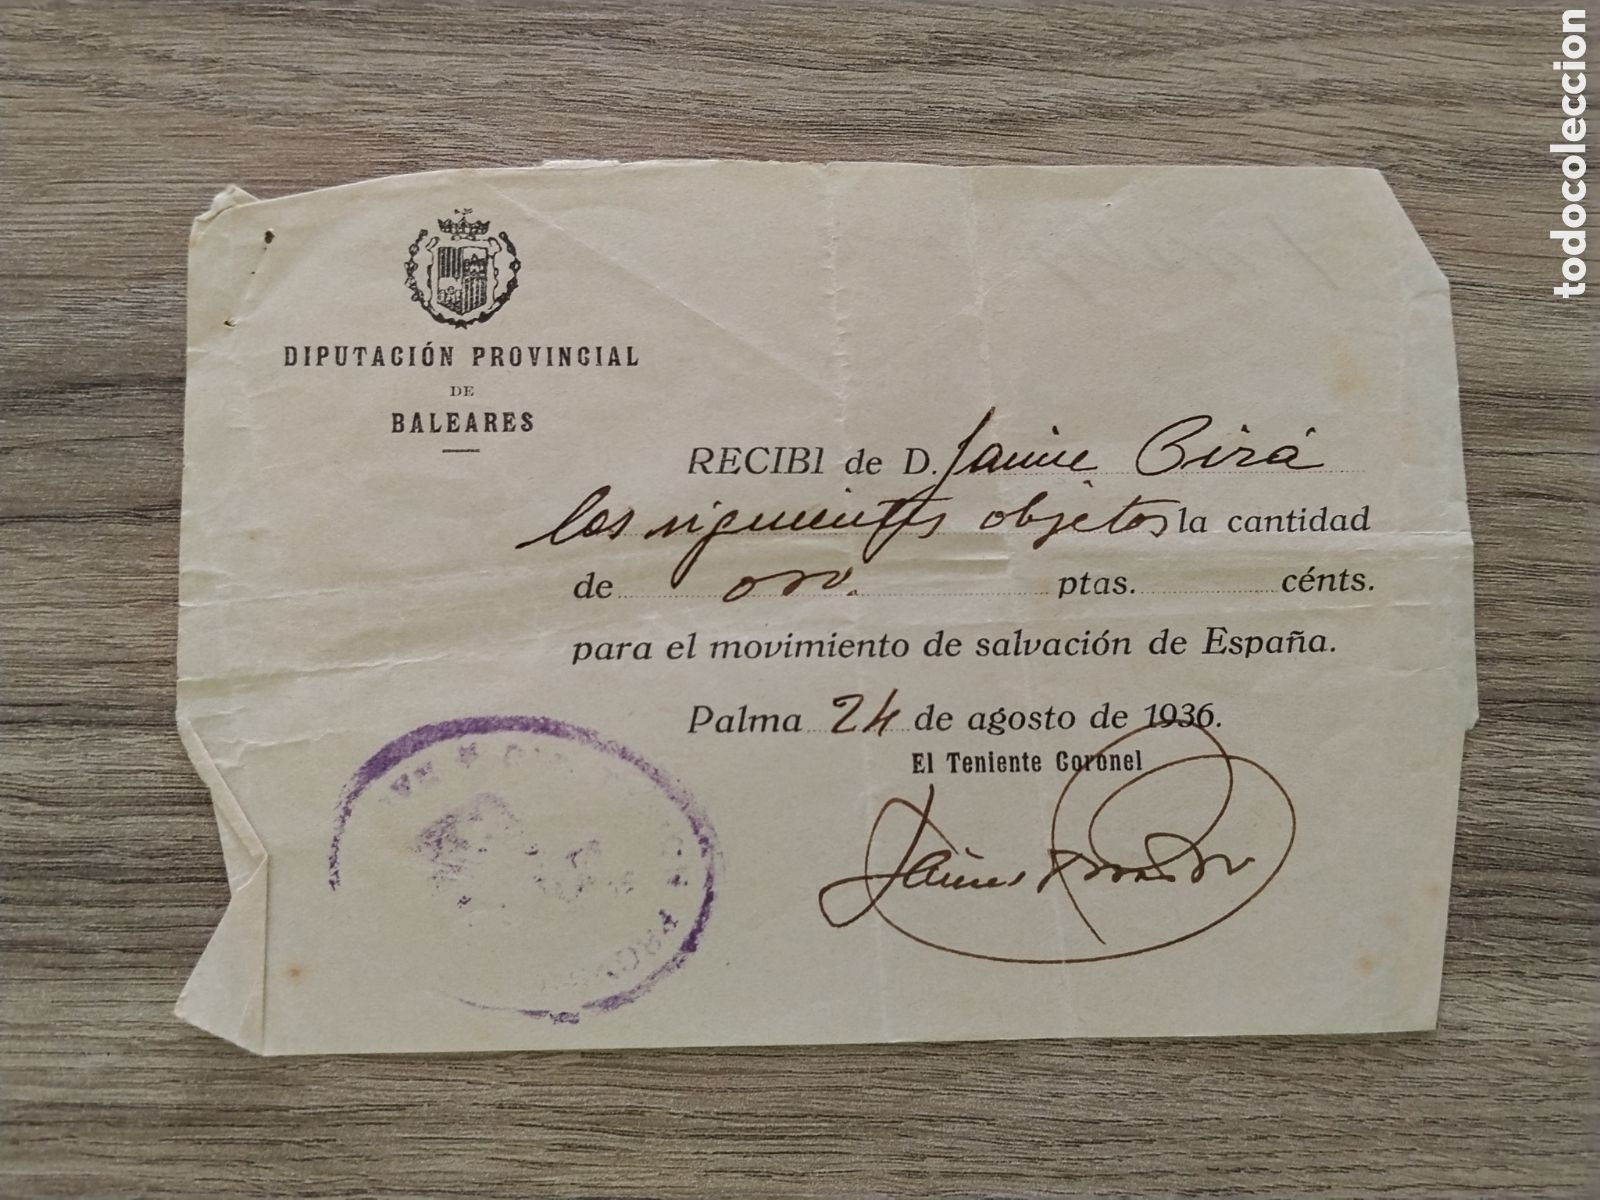 DIPUTACIÓN PROVINCIAL
DE
BALEARES
RECIBI de D. Jaime
los siguientes objetos la cantidad
de oro. ptas. cénts.
para el movimiento de salvación de España.
Palma 24 de agosto de 1936.
El Teniente Coronel
Jaime
todocoleccion